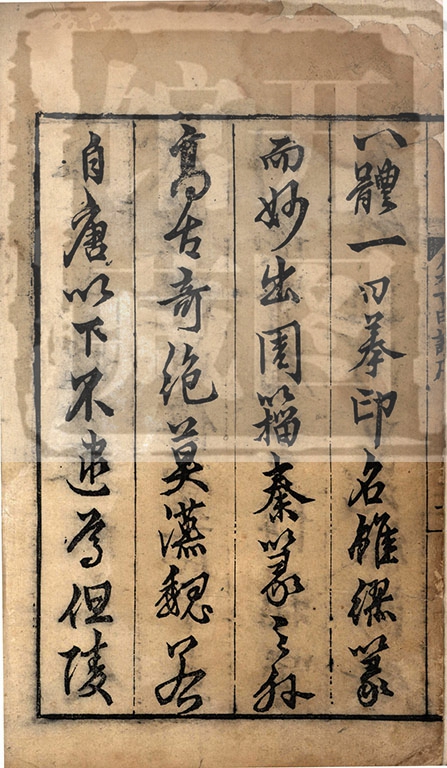 八體一曰摹印名雖繆篆
而妙出周籀秦篆之外
高古奇絶莫漢魏若
自唐以下不逮焉但陵